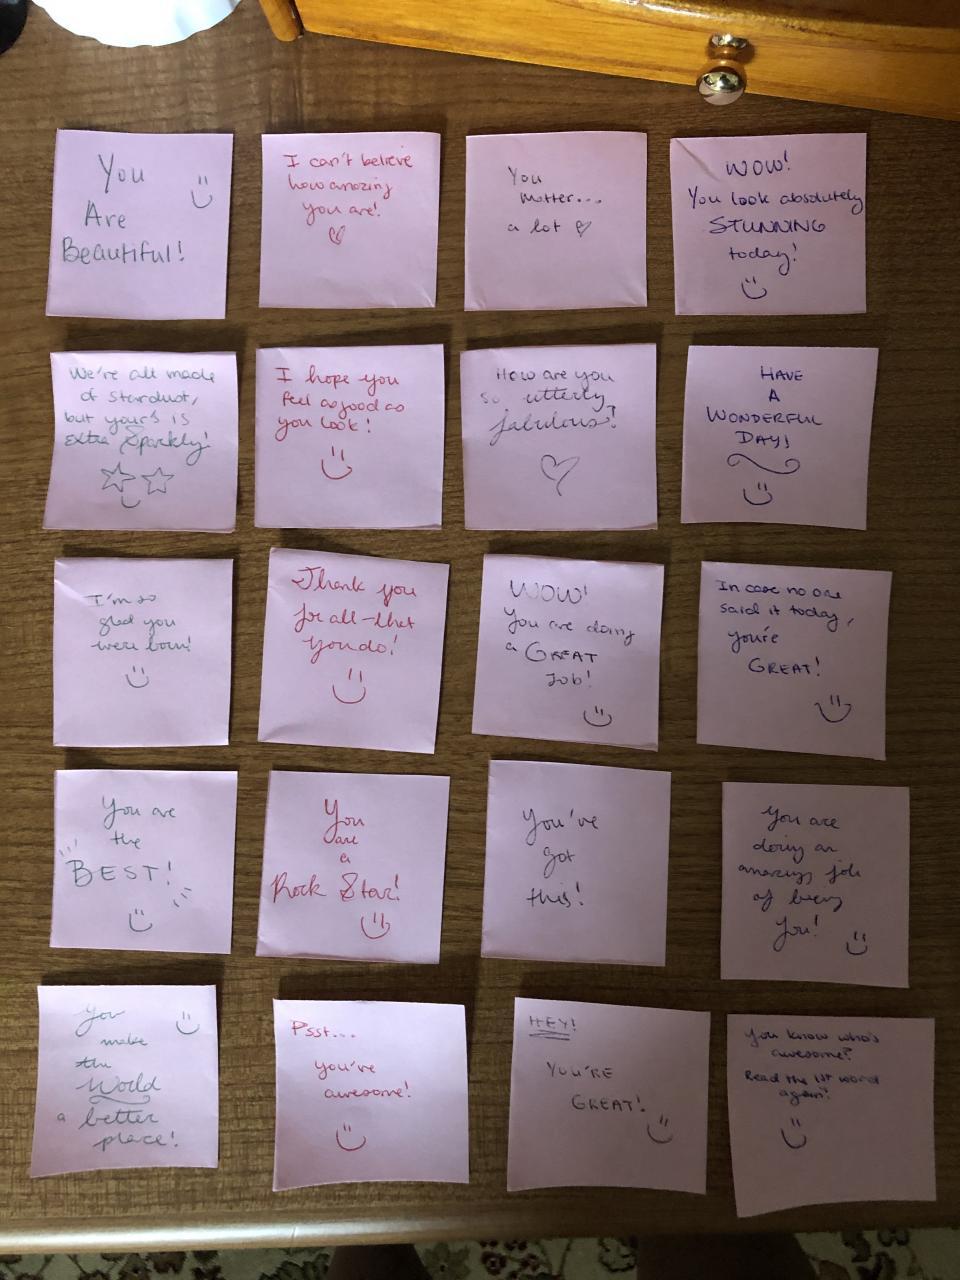 You
Are
Beautiful!
I can't believe
how amazing
you are!
You
matter...
a lot
WOW!
You look absolutely
STUNNING
today!
We're all made
of stardust,
but yours is
Extra Sparkly!
I hope you
feel as good as
you look!
How are you
so utterly
fabulous?
HAVE
A
WONDERFUL
DAY!
I'm so
glad you
were born!
Thank you
for all that
you do!
WOW!
You are doing
a GREAT
Job!
In case no one
said it today,
you're
GREAT!
You are
the
BEST!
You
are
a
Rock Star!
You've
got
this!
You are
doing an
amazing job
of being
you!
You
make
the
World
a better
place!
Psst...
you've
awesome!
HEY!
YOU'RE
GREAT!
You know who's
awesome?
Read the 1st word
again!